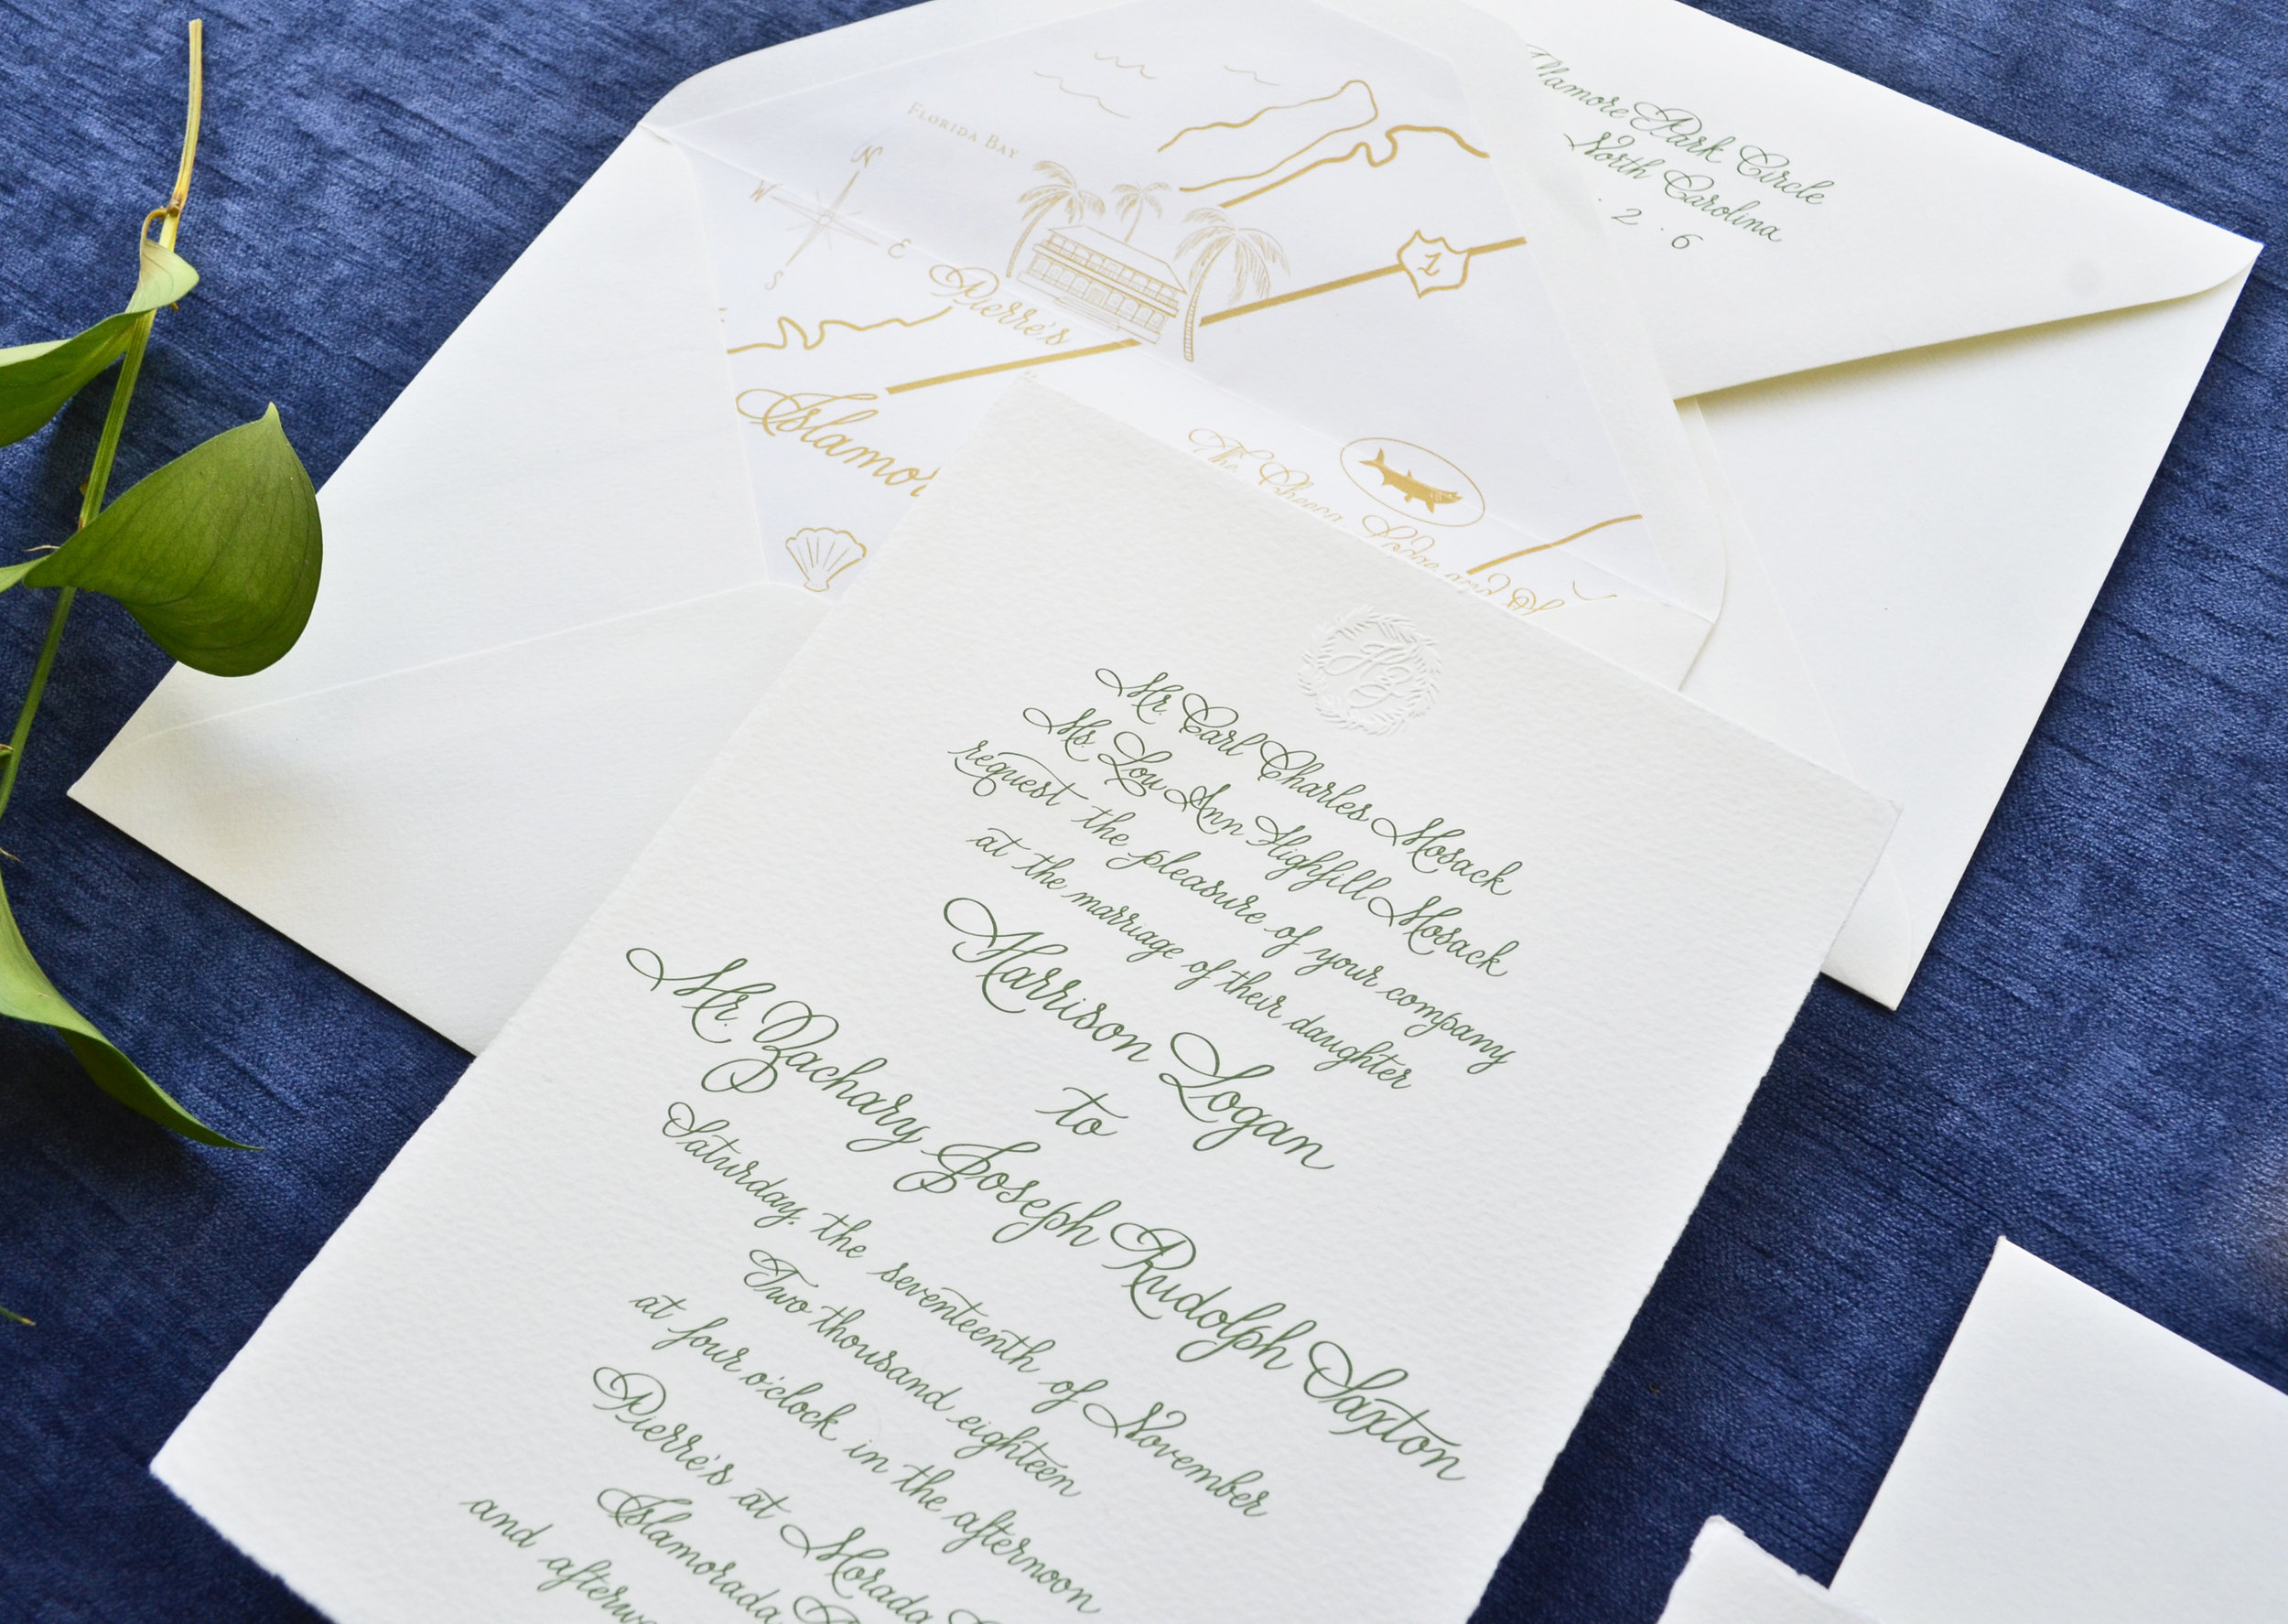 Park Circle
North Carolina
2 . 6
FLORIDA BAY
N
W
E
S
1
Pierre's
The Cheeca Lodge and
Mr. Carl Charles Mosack
Ms. Lou Ann Highfill Mosack
request the pleasure of your company
at the marriage of their daughter
Harrison Logan
to
Mr. Zachary Joseph Rudolph Saxton
Saturday, the seventeenth of November
Two thousand eighteen
at four o'clock in the afternoon
Pierre's at Morada
Islamorada
and